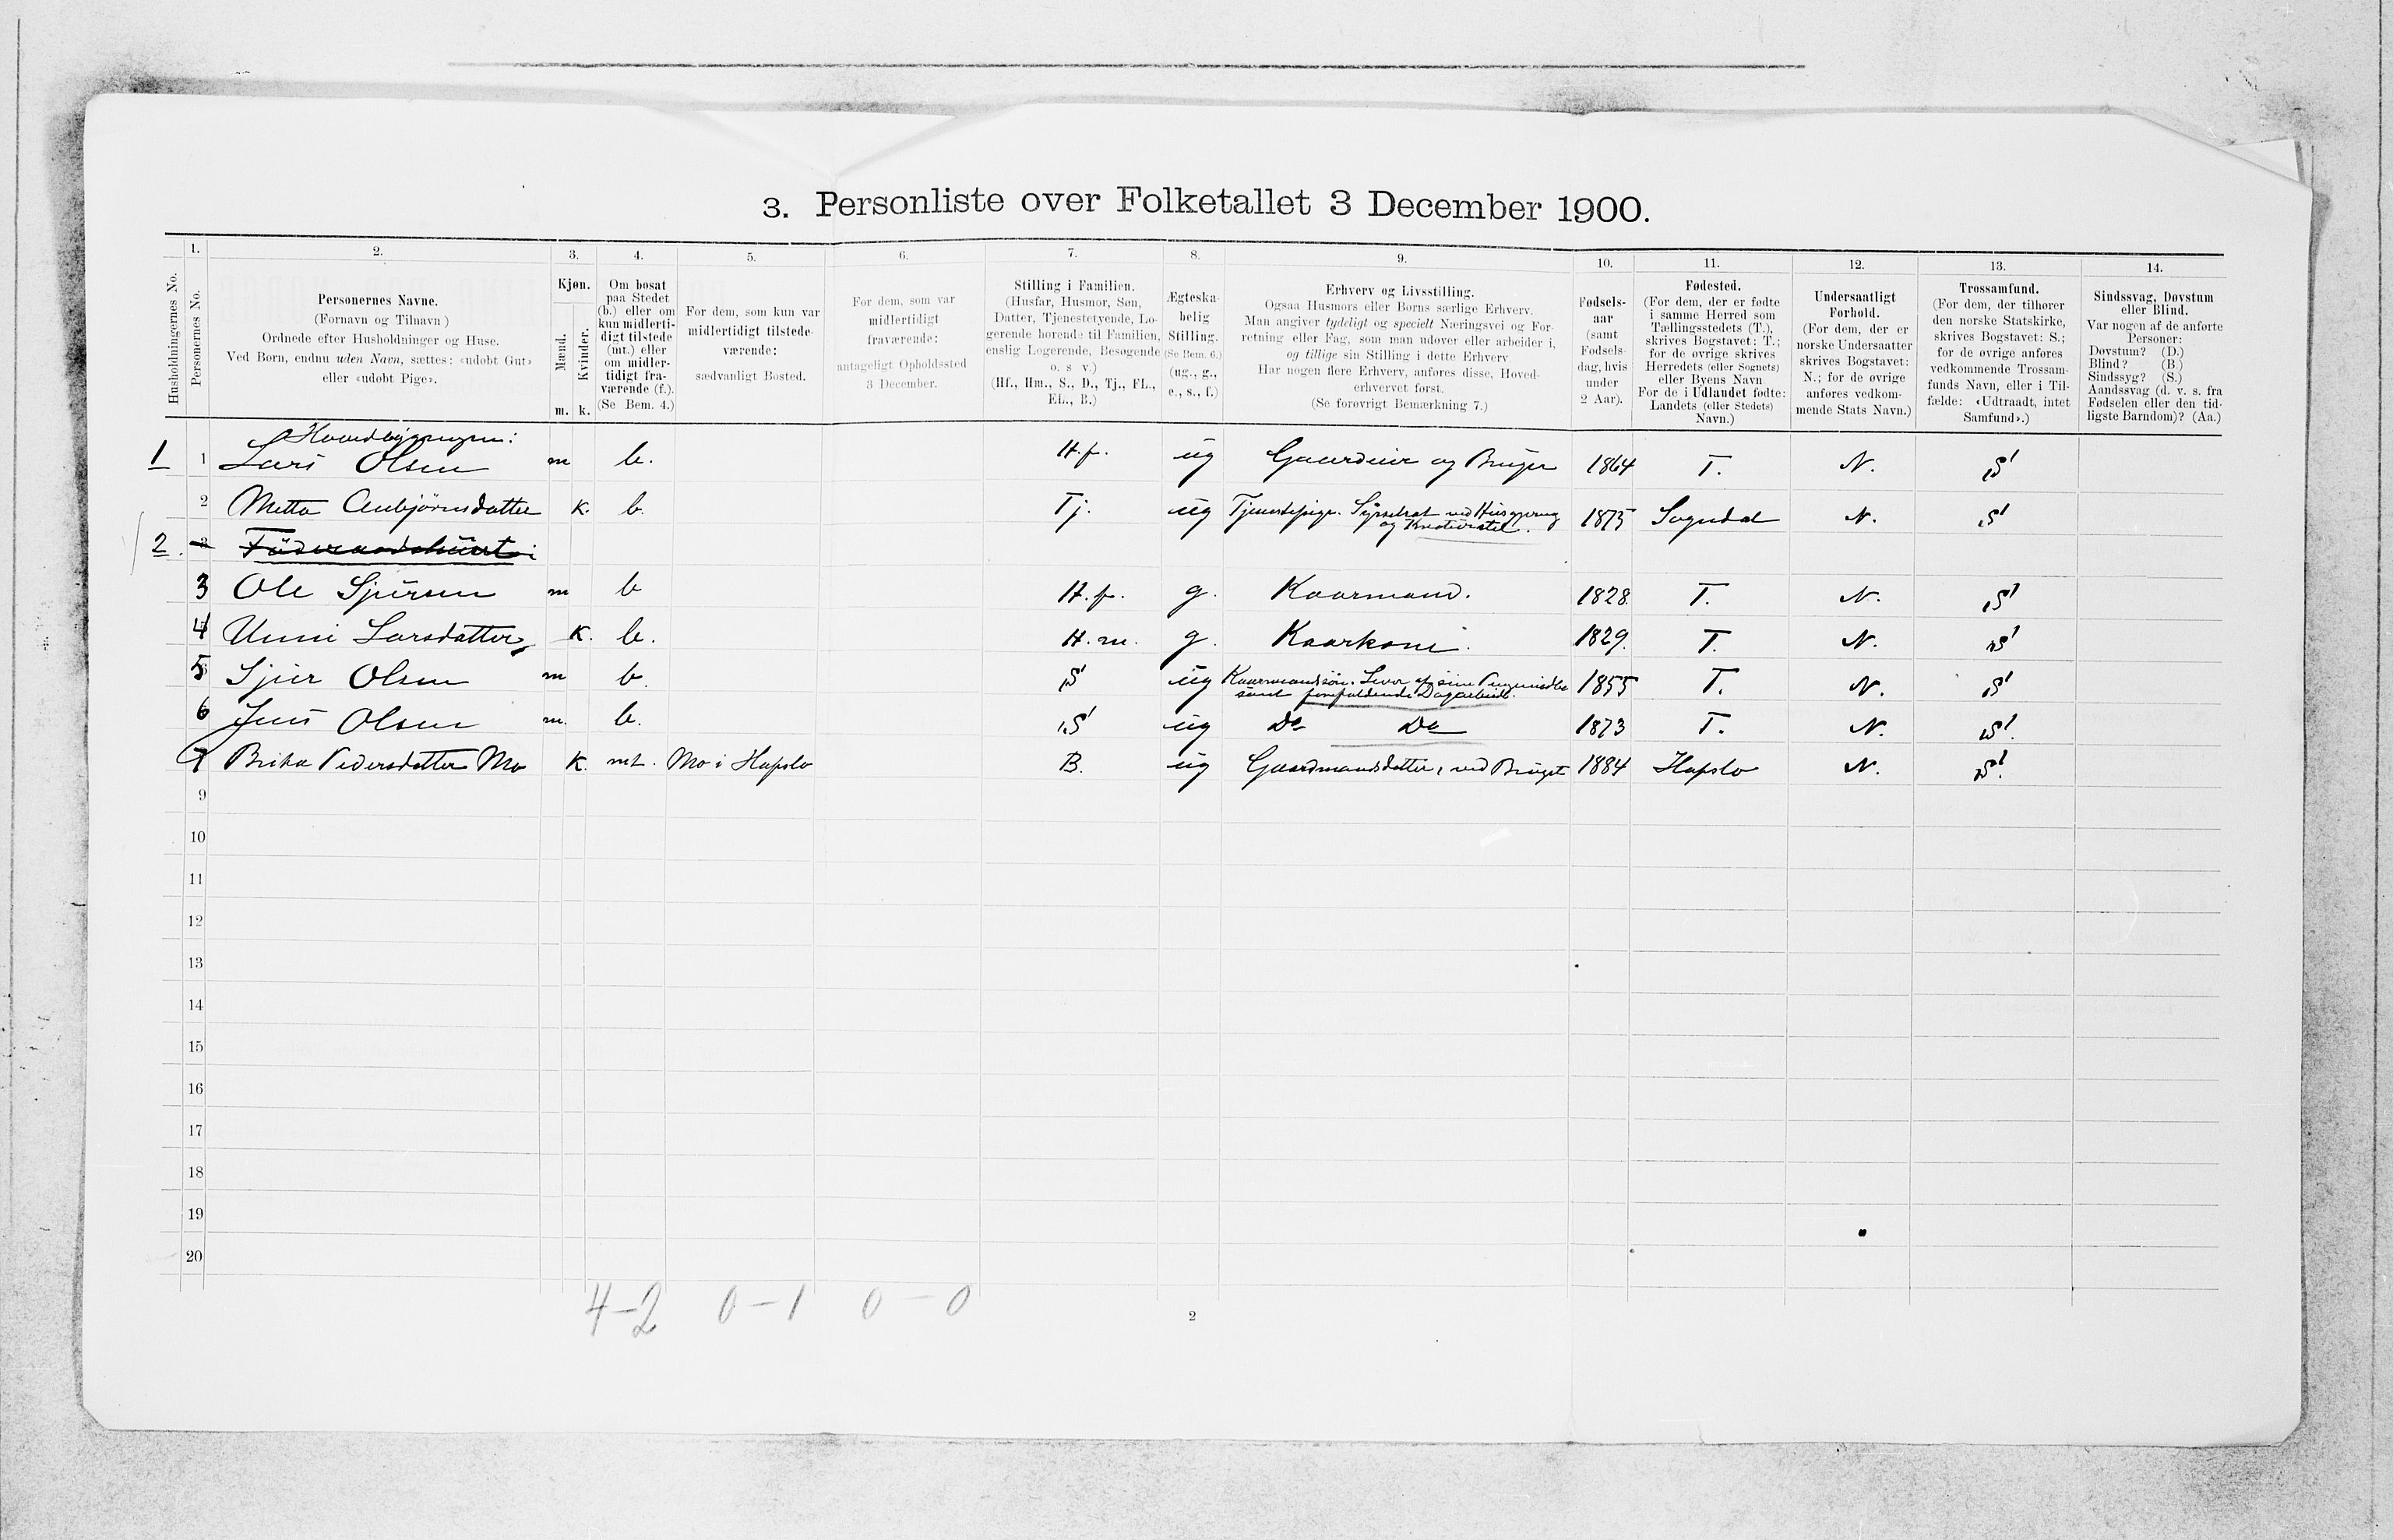 3. Personliste over Folketallet 3 December 1900.
Husholdningernes No.
1.
Personernes No.
2.
Personernes Navne.
(Fornavn og Tilnavn)
Ordnede efter Husholdninger og Huse.
Ved Børn, endnu uden Navn, sættes: «udøbt Gut»
eller «udøbt Pige».
3.
Kjøn.
Mænd.
Kvinder.
m. k.
4.
Om bosat
paa Stedet
(b.) eller om
kun midlerti-
digt tilstede
(mt.) eller
om midler-
tidigt fra-
værende (f.).
(Se Bem. 4.)
5.
For dem, som kun var
midlertidigt tilstede-
værende:
sædvanligt Bosted.
6.
For dem, som var
midlertidigt
fraværende:
antageligt Opholdssted
3 December.
7.
Stilling i Familien.
(Husfar, Husmor, Søn,
Datter, Tjenestetyende, Lo-
gerende hørende til Familien,
enslig Logerende, Besøgende
o. s. v.)
(Hf., Hm., S., D., Tj., FL.,
EL., B.)
8.
Ægteska-
belig
Stilling.
(Se Bem. 6.)
(ug., g.,
e., s., f.)
9.
Erhverv og Livsstilling.
Ogsaa Husmors eller Børns særlige Erhverv.
Man angiver tydeligt og specielt Næringsvei og For-
retning eller Fag, som man udøver eller arbeider i,
og tillige sin Stilling i dette Erhverv.
Har nogen flere Erhverv, anføres disse, Hoved-
erhvervet først.
(Se forøvrigt Bemærkning 7.)
10.
Fødsels-
aar
(samt
Fødsels-
dag, hvis
under
2 Aar).
11.
Fødested.
(For dem, der er fødte
i samme Herred som
Tællingsstedets (T.),
skrives Bogstavet: T.;
for de øvrige skrives
Herredets (eller Sognets)
eller Byens Navn
For de i Udlandet fødte:
Landets (eller Stedets)
Navn.)
12.
Undersaatligt
Forhold.
(For dem, der er
norske Undersaatter
skrives Bogstavet:
N.; for de øvrige
anføres vedkom-
mende Stats Navn.)
13.
Trossamfund.
(For dem, der tilhører
den norske Statskirke,
skrives Bogstavet: S.;
for de øvrige anføres
vedkommende Trossam-
funds Navn, eller i Til-
fælde: «Udtraadt, intet
Samfund».)
14.
Sindssvag, Døvstum
eller Blind.
Var nogen af de anførte
Personer:
Døvstum? (D.)
Blind? (B.)
Sindssyg? (S.)
Aandssvag (d. v. s. fra
Fødselen eller den tid-
ligste Barndom)? (Aa.)
Hovedbygningen:
1 1 Lars Olsen m b. H.f. ug Gaardeier og Bruger 1864 T. N. S
2 Metta Anbjörnsdatter k. b. Tj. ug Tjenestepige. Sysselsat ved Husgjerning 1875 Sogndal N. S
og Kreaturstel.
2. 3 Föderaadshuset:
3 Ole Sjursen m b H.f. g. Kaarmand. 1828. T. N. S
4 Unni Larsdatter k. b. H.m. g. Kaarkone. 1829. T. N. S
5 Sjur Olsen m b. S ug Kaarmandsön. Lever af sine Pengemidler 1855 T. N. S
samt forefaldende Dagarbeide.
6 Jens Olsen m. b. S ug Do Do 1873 T. N. S.
7 Brita Pedersdatter Mo k. mt. Mo i Hafslo B. ug Gaardmandsdatter, ved Bruget 1884 Hafslo N. S.
9
10
11
12
13
14
15
16
17
18
19
20
4-2 0-1 0-0
2